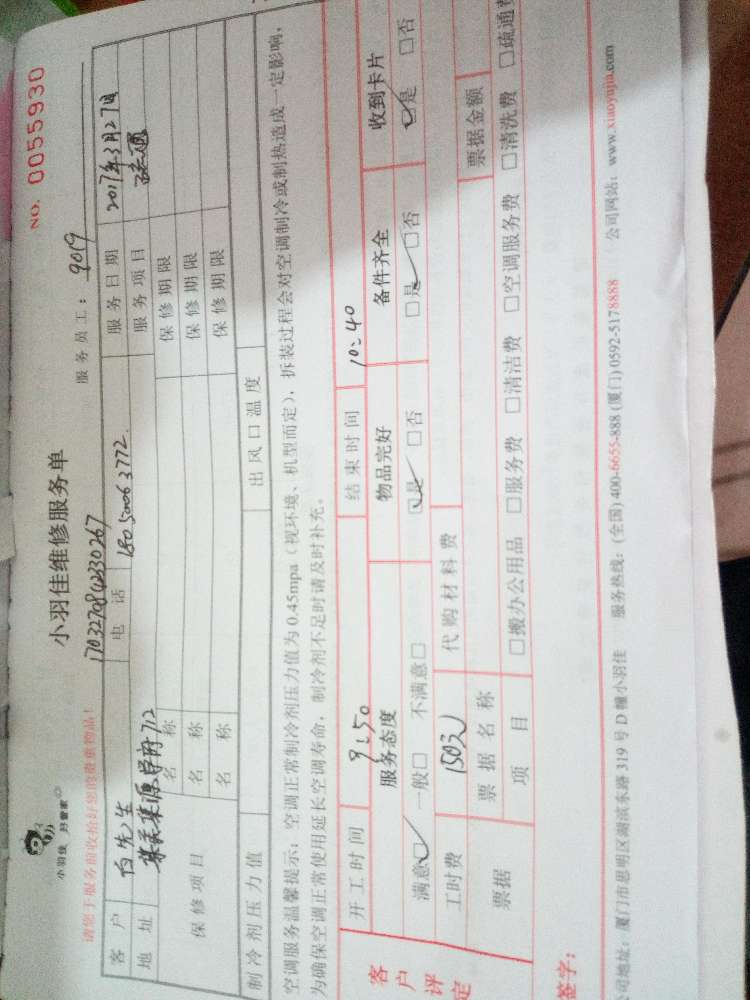 NO. 0055930
小羽佳 好管家
小羽佳维修服务单
1703270842330267
服务员工： 9019
请您于服务前收拾好您的贵重物品！
客户 白先生 电话 18050063772 服务日期 2017年3月27日
地址 集美集源学府712 服务项目 疏通
保修项目 名称 保修期限
名称 保修期限
名称 保修期限
制冷剂压力值 出风口温度
空调服务温馨提示：空调正常制冷剂压力值为 0.45mpa（视环境、机型而定），拆装过程会对空调制冷或制热造成一定影响，
为确保空调正常使用延长空调寿命，制冷剂不足时请及时补充。
开工时间 9:50 结束时间 10:40
客户评定 服务态度 物品完好 备件齐全 收到卡片
满意□ 一般□ 不满意□ □是 □否 □是 □否 □是 □否
工时费 150元 代购材料费
票据 票据名称 票据金额
项目 □搬办公用品 □服务费 □清洁费 □空调服务费 □清洗费 □疏通费
签字：
司地址：厦门市思明区湖滨东路 319 号 D 幢小羽佳 服务热线：(全国) 400-6655-888 (厦门) 0592-5178888 公司网站：www.xiaoyujia.com